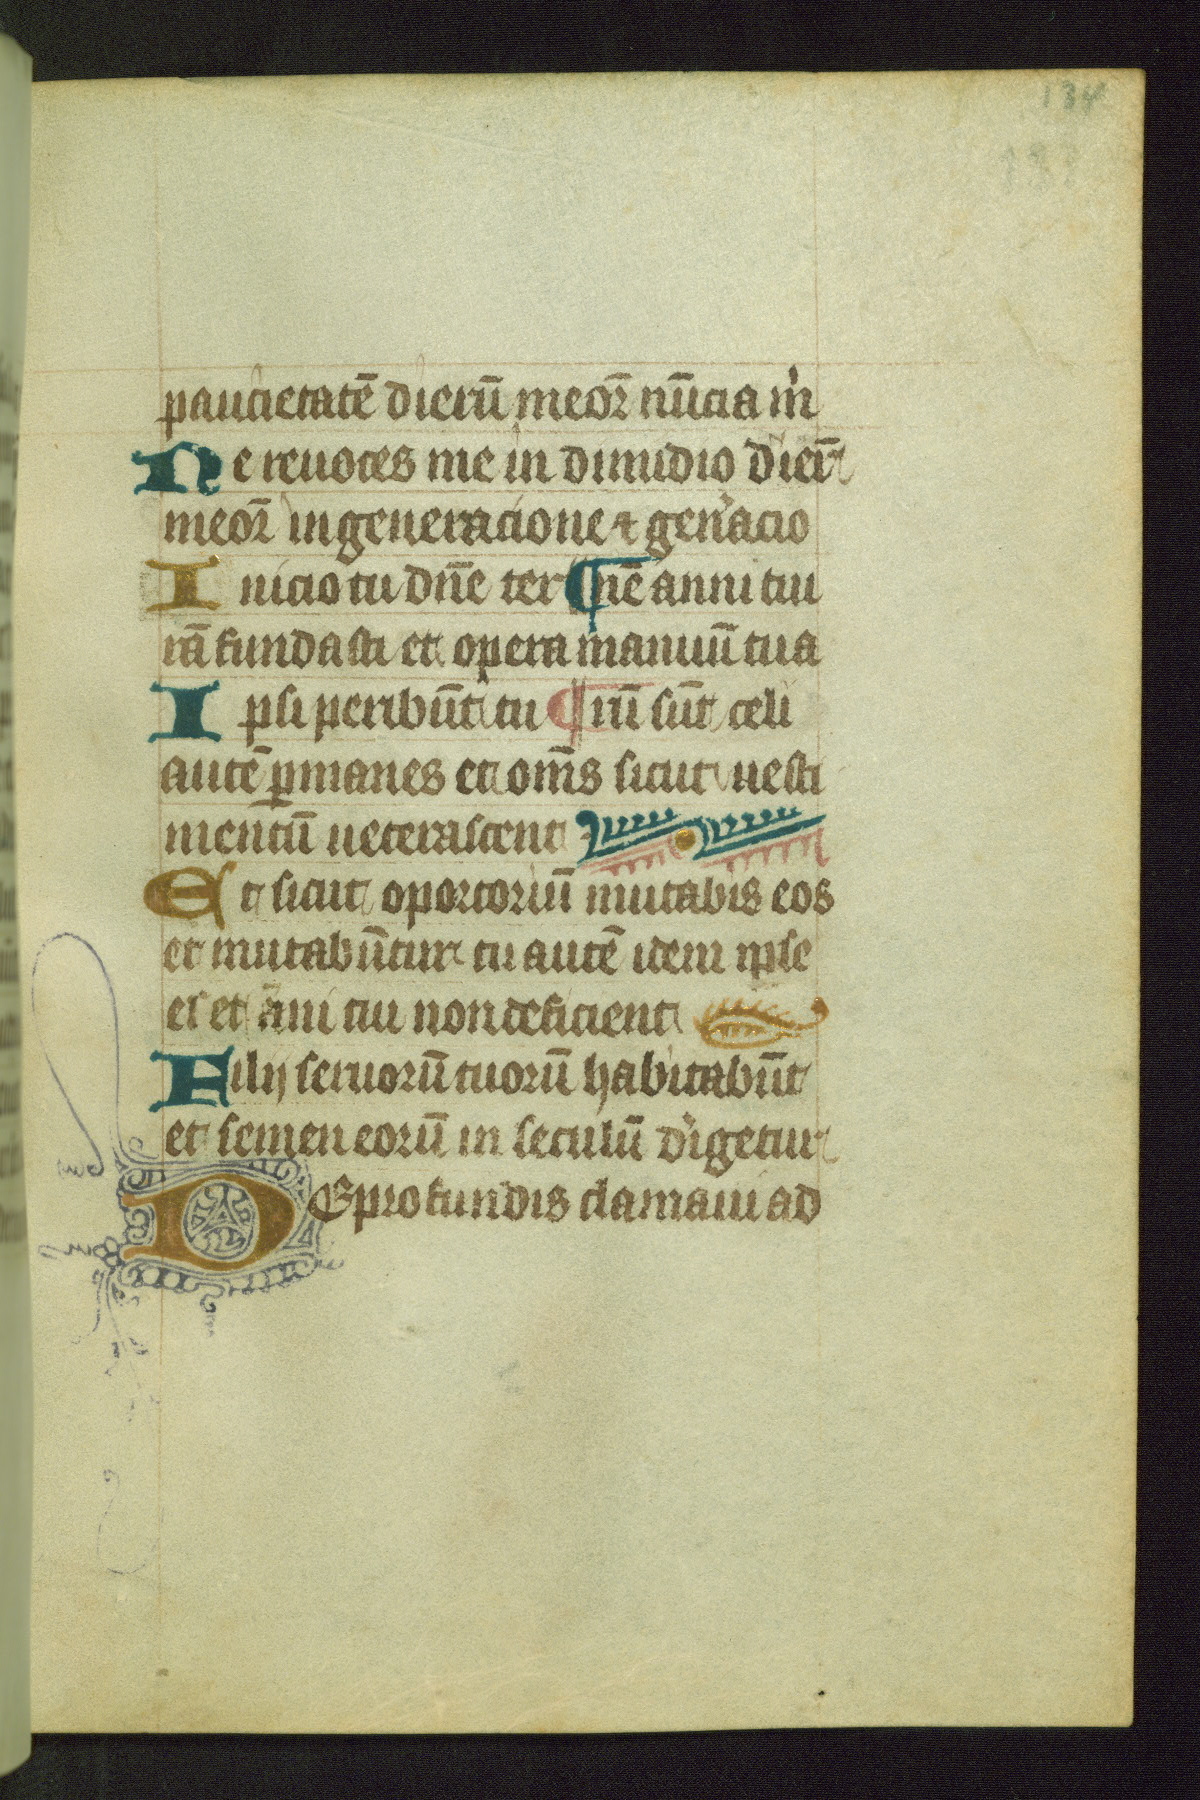 134
paucietatē dierū meoꝝ nūcia m̉
Ne reuoces me in dimidio dieꝝ
meoꝝ in generacione ⁊ gen̉acio
Inicio tu dn̄e ter ¶ nē anni tui
rā fundasti et opera manuū tua
Ipsi peribūt tu ¶ rū sūt celi
autē ꝑmanes et om̄s sicut uesti
mentū ueterascent
Et sicut oportoriū mutabis eos
et mutabūtur tu autē idem ipse
es et āni tui non deficient
Filij seruorū tuorū habitabūt
et semen eorū in seculū d'igetur
DE profundis clamaui ad